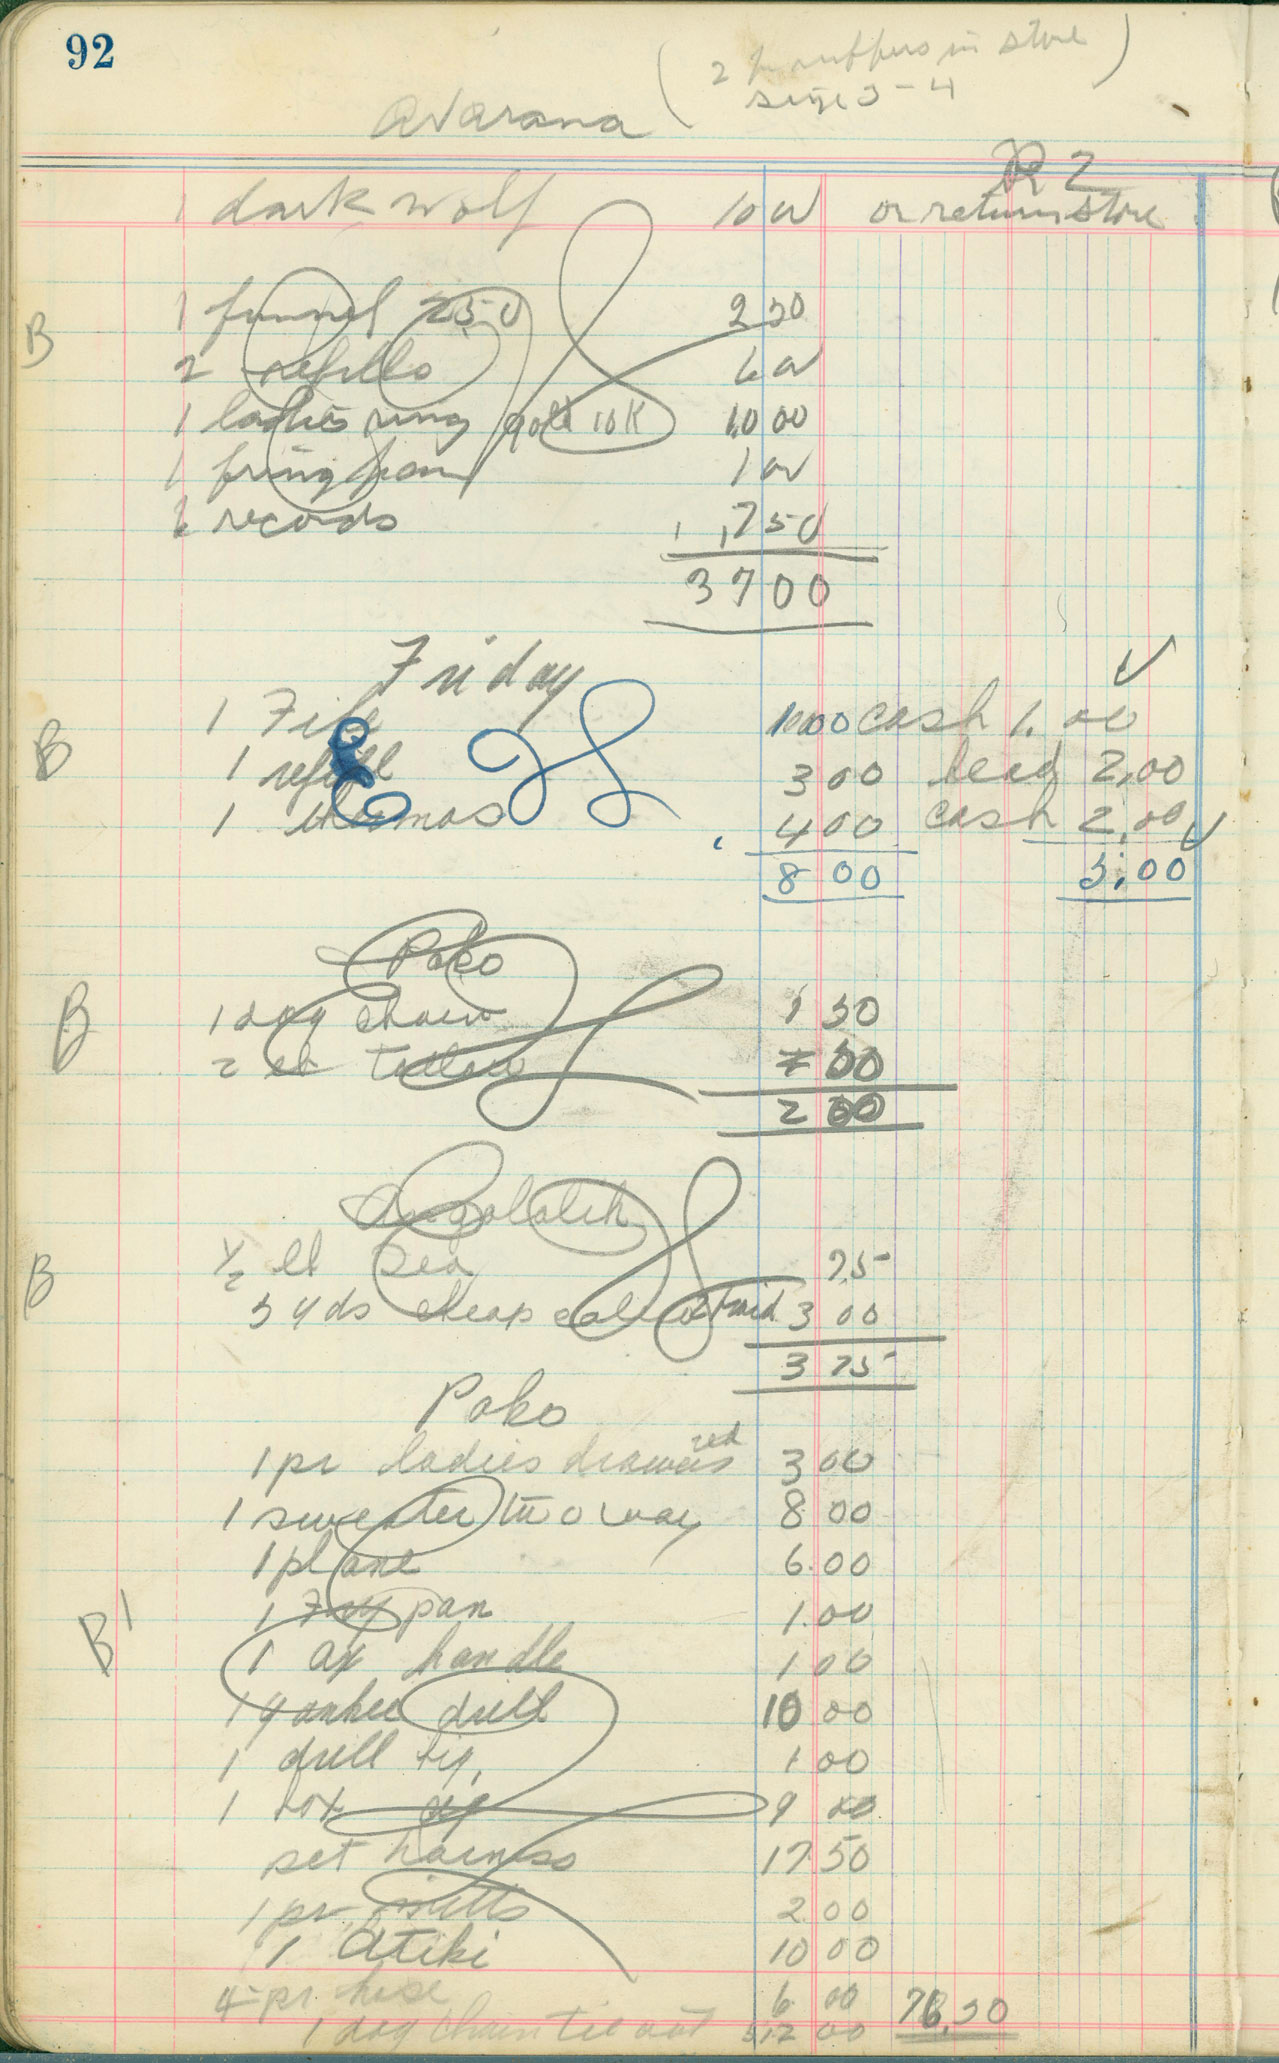 92
(2 pr in store)
size 3-4
Avarana
R 2
1 dark wolf 10 00 or return store
1 funnel 250 2 50
B
2 refills 6 00
1 ladies ring gold 10K 10 00
1 fring pan 1 00
records 7 50
37 00
Friday
1 File 1 00 cash 1.00
B
1 refill 3 00 lead 2.00
1 thermos 4 00 cash 2.00
8 00 5.00
Poko
B
1 dog chain 1 50
2 lb 50
2 00
B
½ lb Tea 75
3 yds cheap 3 00
3 75
Poko
1 pr ladies drawers red 3 00
1 sweater two way 8 00
1 plane 6.00
1 Fry pan 1.00
B1
1 ax handle 1 00
1 yankee drill 10 00
1 drill 1 00
1 box 9 00
set harness 17 50
1 pr mitts 2 00
1 Atiki 10 00
4 pr hose 6 00 76.50
1 dog chain tie out 12 00